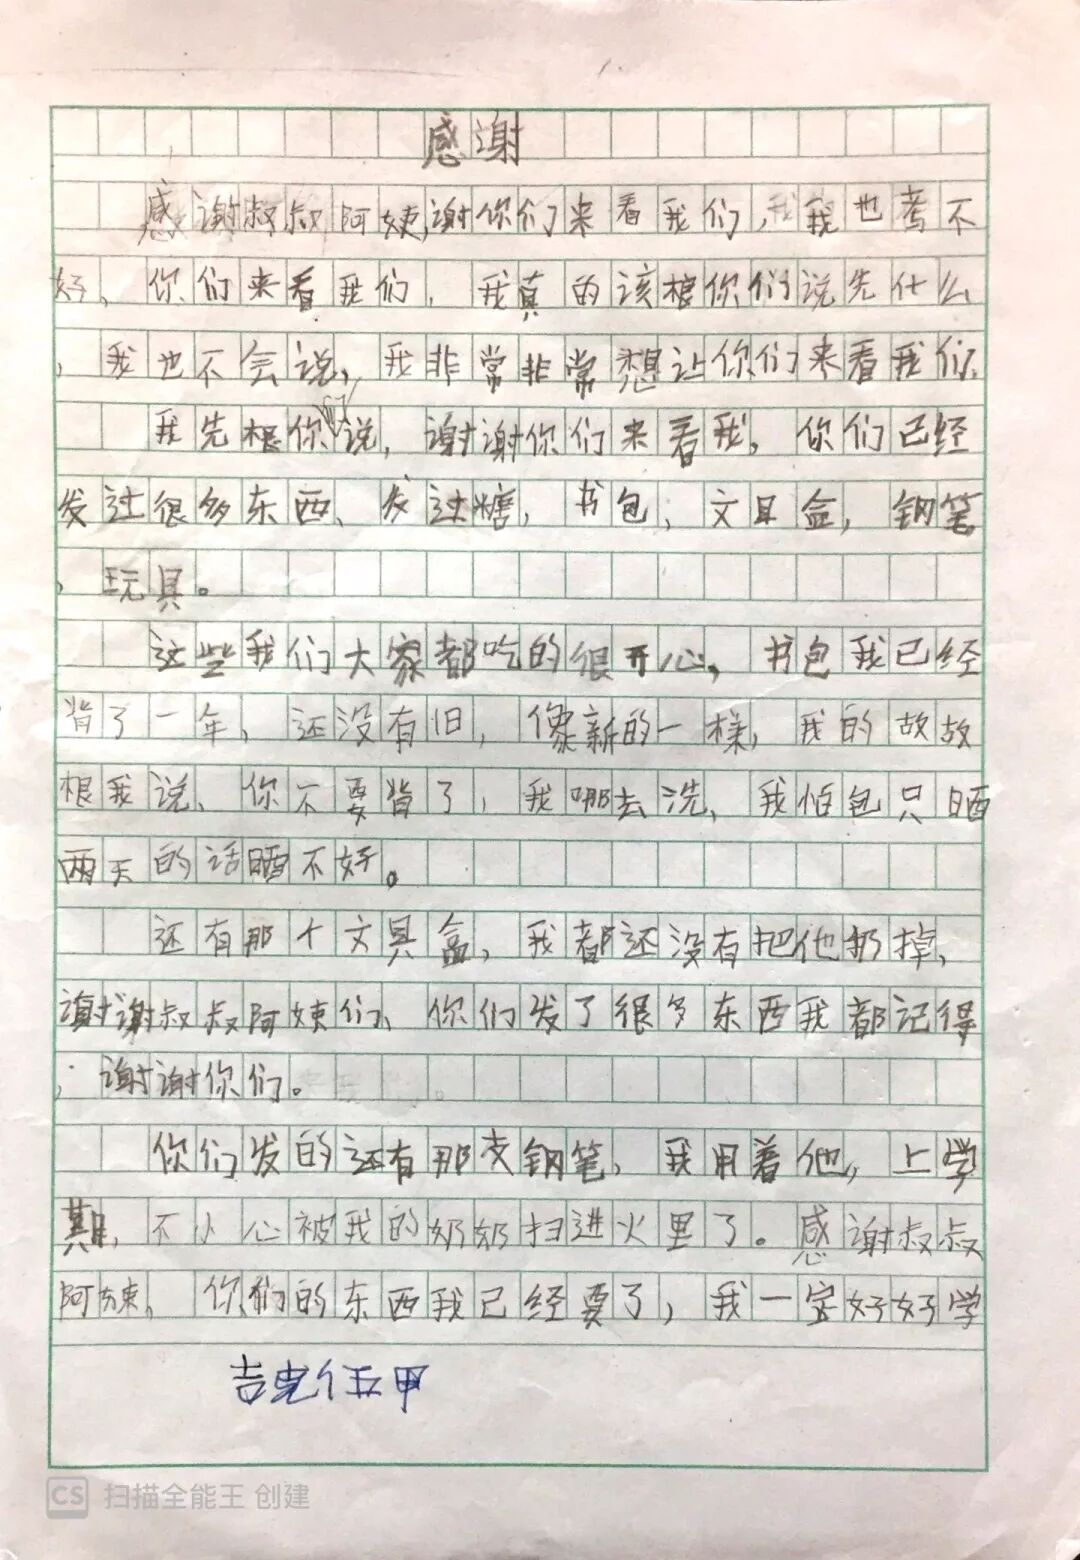 感谢
感谢叔叔阿姨,谢你们来看我们,我我也考不
好、你们来看我们，我真的该根你们说先什么
，我也不会说、我非常非常想让你们来看我们.
我先根你说，谢谢你们来看我。你们已经
发过很多东西、发过糖，书包，文具盒，钢笔
，玩具。
这些我们大家都吃的很开心，书包我已经
背了一年，还没有旧，像新的一样，我的故故
根我说、你不要背了，我哪去洗、我怕包只晒
两天的话晒不好。
还有那个文具盒，我都还没有把他扔掉，
谢谢叔叔阿姨们、你们发了很多东西我都记得
，谢谢你们。
你们发的还有那支钢笔，我用着他，上学
期，不小心被我的奶奶扫进火里了。感谢叔叔
阿姨、你们的东西我已经要了，我一定好好学
吉克伍甲
CS 扫描全能王 创建